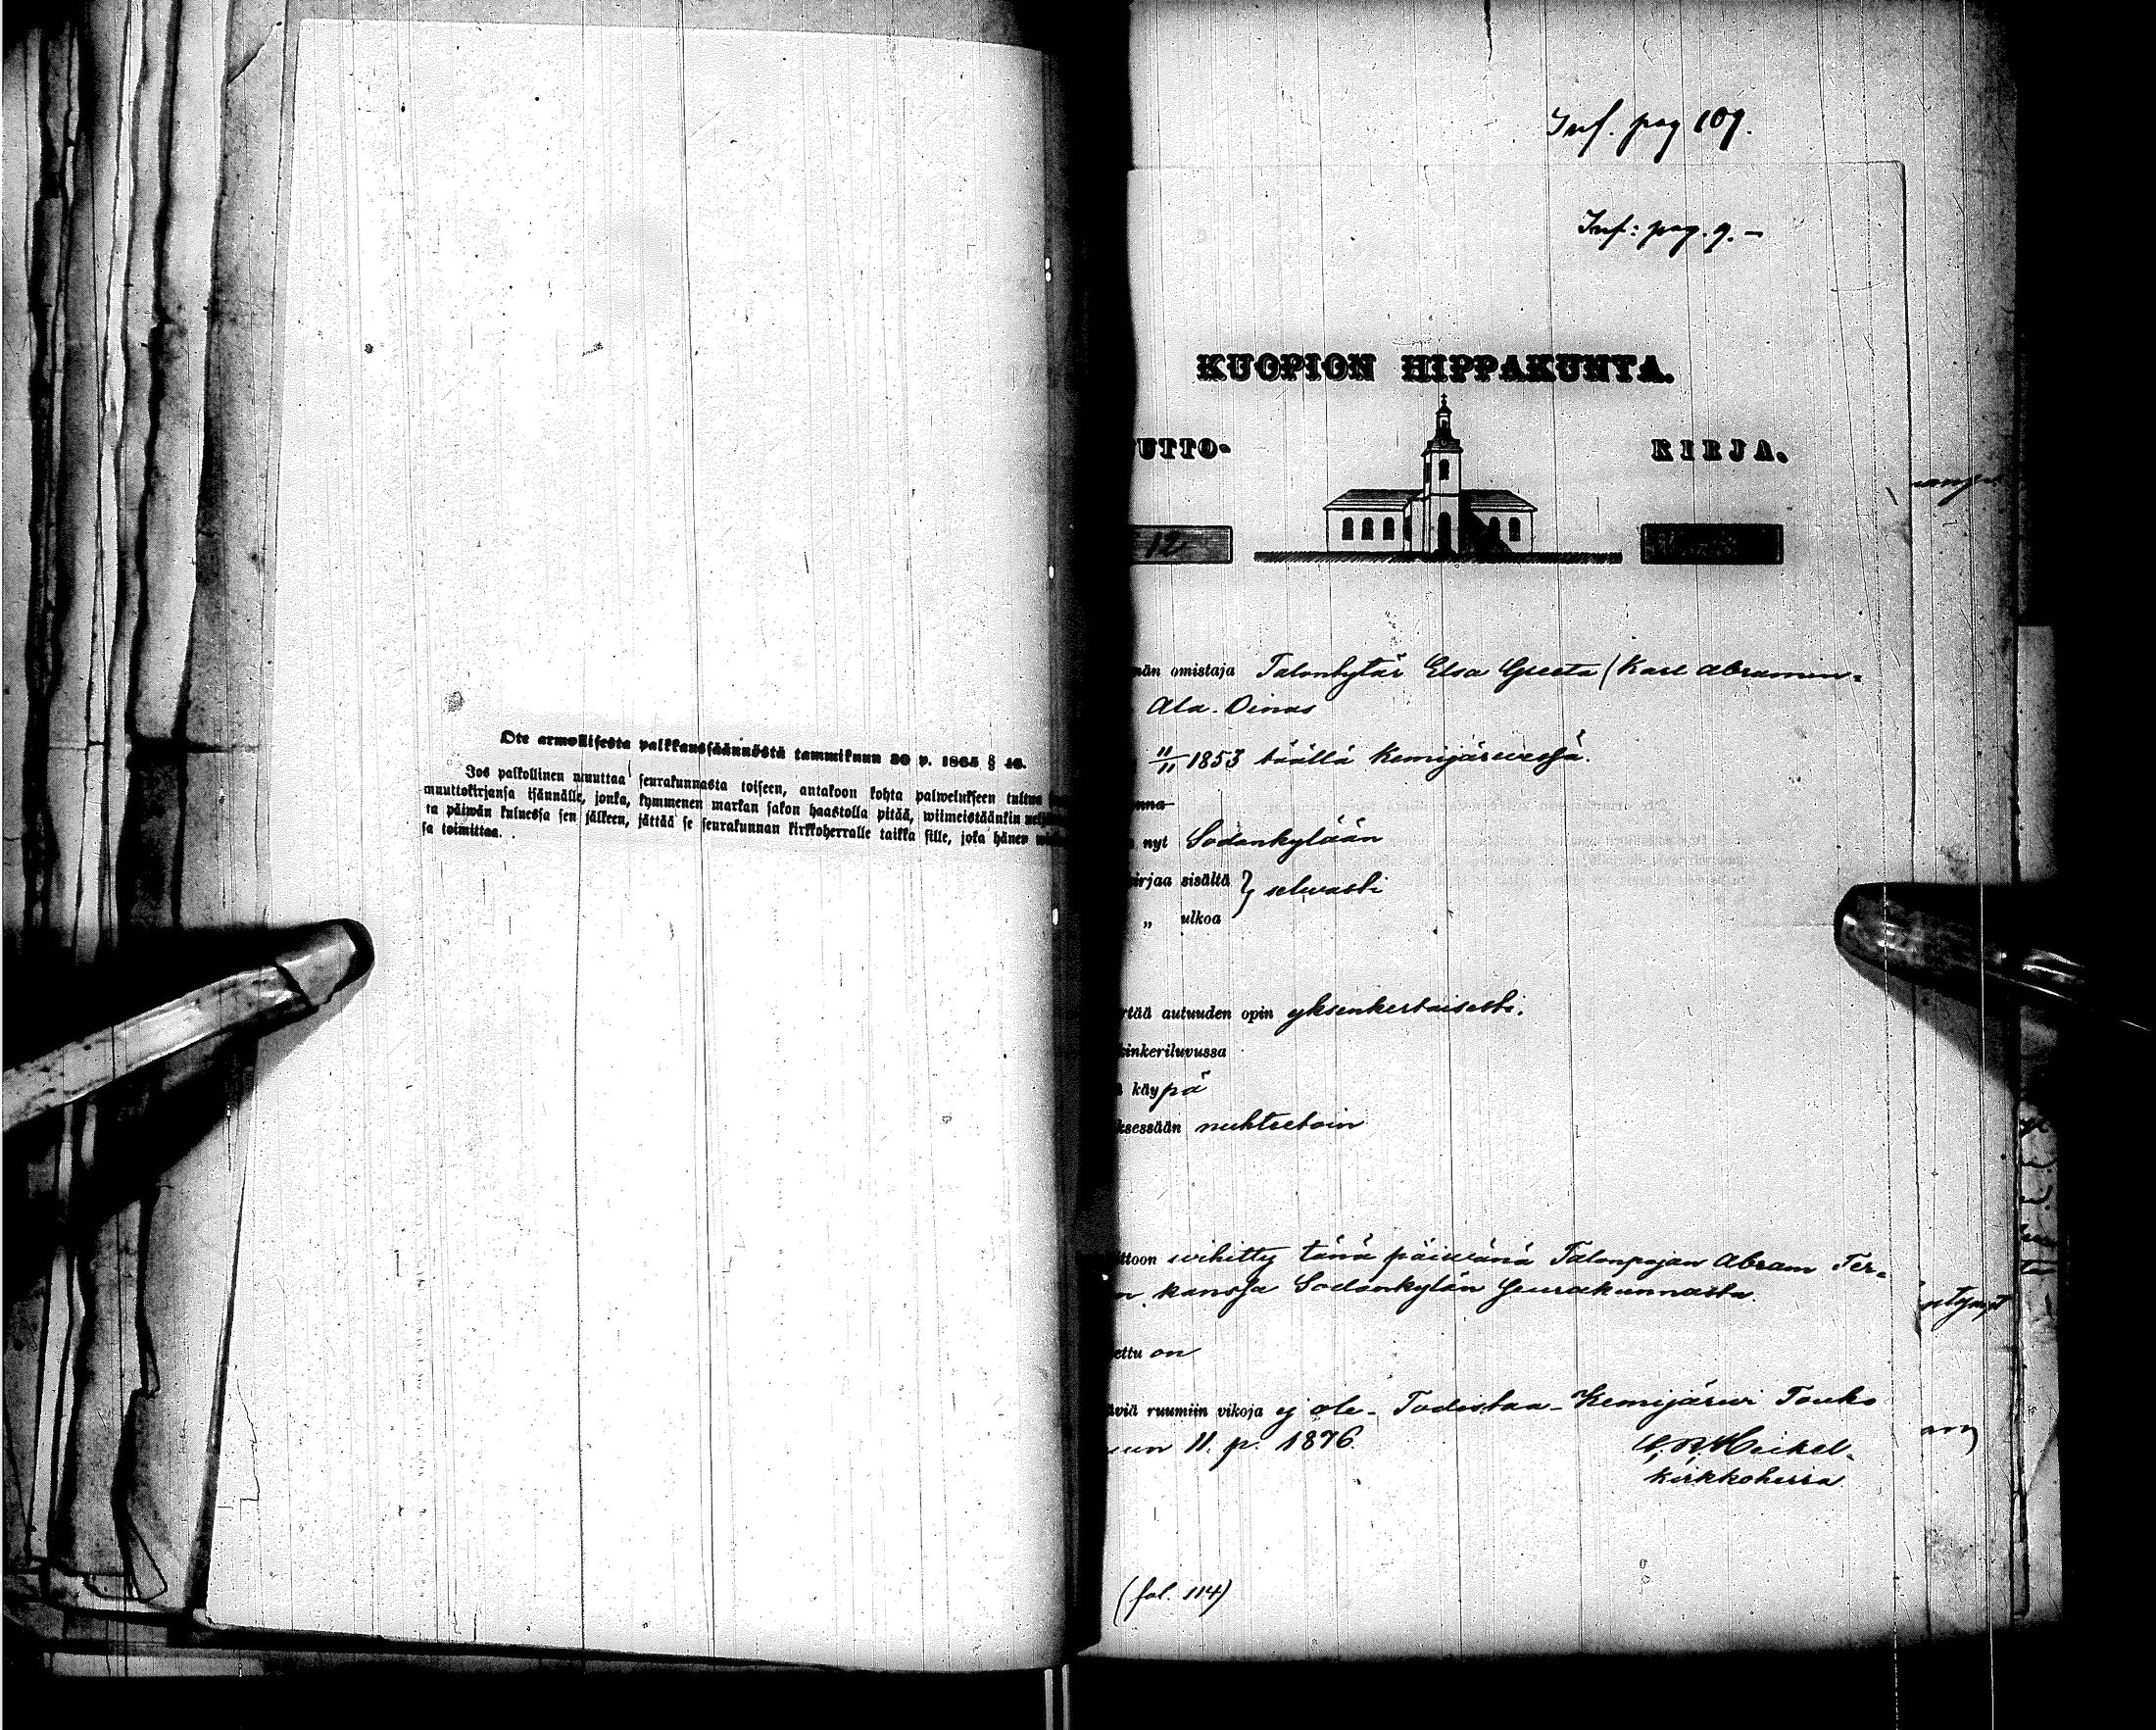 Ote armollisesta palkkaussäännöstä tammikuun 30 p. 1865 § 46.
Jos palkollinen muuttaa seurakunnasta toiseen, antakoon kohta palwelukseen tultua
muuttokirjansa isännälle, jonka, kymmenen markan sakon haastolla pitää, wiimeistäänkin
ta päiwän kuluessa sen jälkeen, jättää se seurakunnan kirkkoherralle taikka sille, joka hänen
sa toimittaa.
Inf. pag 109.
Inf: pag. 9.-
KUOPION HIPPAKUNTA.
UTTO-
KIRJA.
12
män omistaja Talontytär Elsa Greeta (Karl Abramin-
Ala-Oinas
11/11 1853 täällä Kemijärwessä.
nna
nyt Sodankylään
irjaa sisältä } selwästi
„ ulkoa
rtää autuuden opin yksenkertaisesti.
kinkeriluvussa
käypä
ksessään nuhteetoin
ttoon wihitty tänä päiwänä Talonpojan Abram Ter-
n kanssa Sodankylän Seurakunnasta.
ettu on
äviä ruumiin vikoja ej ole - Todistaa - Kemijärwi Touko
uun 11. p. 1876.
Heikel.
kirkkoherra.
(fol. 114)